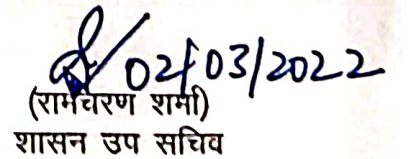 02/03/2022
(रामचरण शर्मा)
शासन उप सचिव